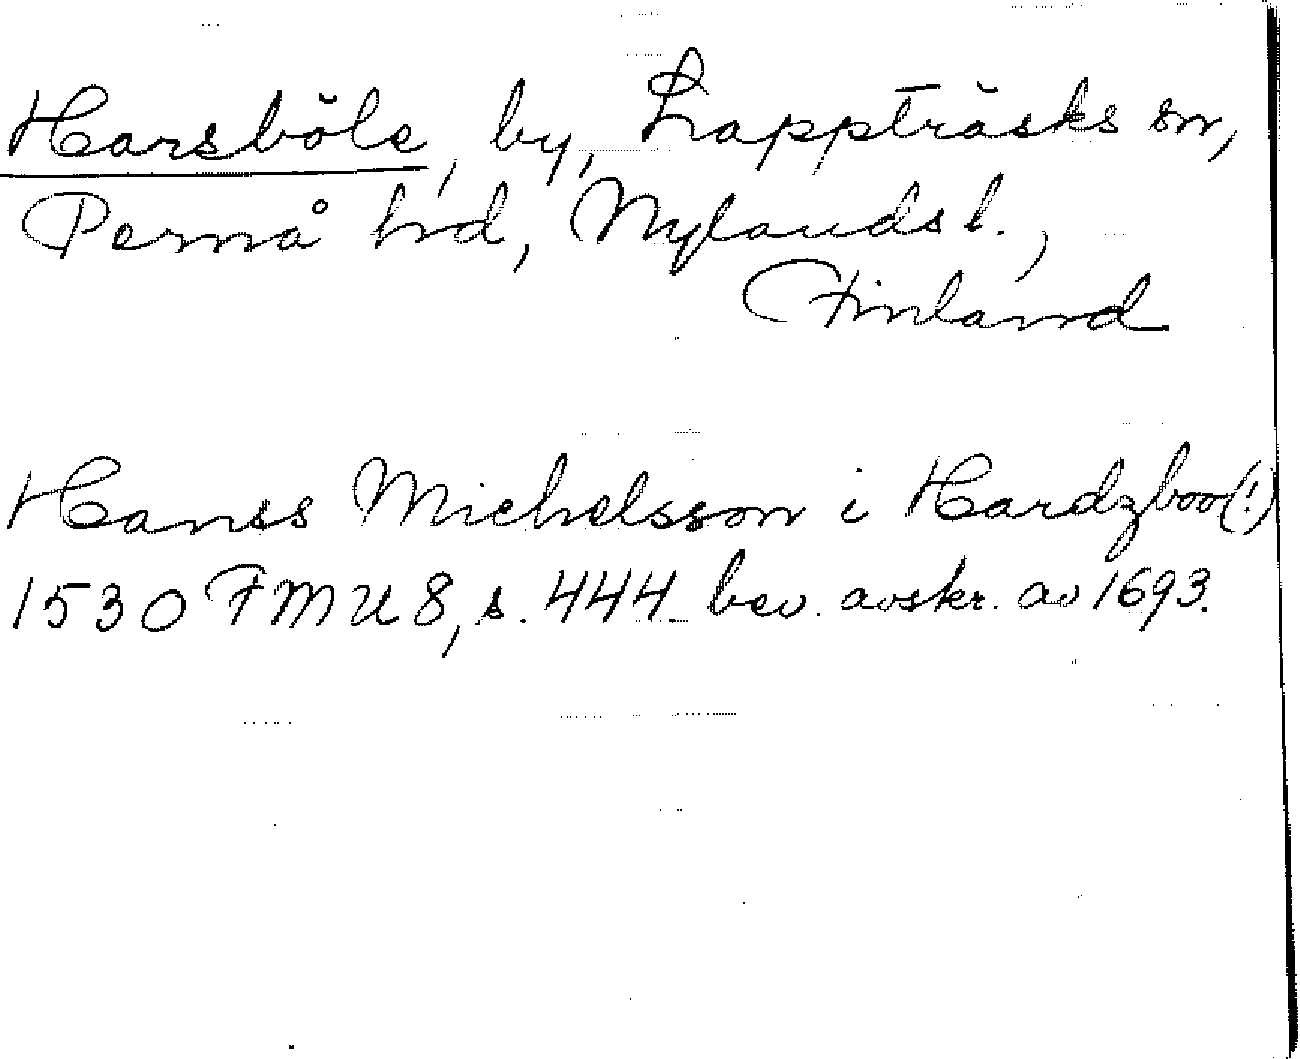 Harsböle, by, Lappträsks sn,
Pernå hd, Nylands l.,
Finland
Hanss Michelsson i Hardzboo(!)
1530 FMU 8, s. 444. bev. avskr. av 1693.